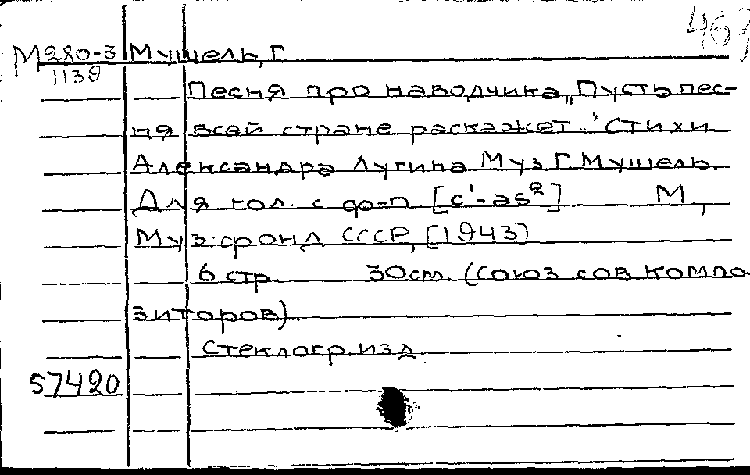 463
М280-3 Мушель, Г.
1139
Песня про наводчика „Пусть пес-
ня всей стране раскажет..." Стихи
Александра Лугина Муз. Г. Мушель.
Для гол. с ф-п. [c'-as²] М.,
Музфонд СССР, [1943]
6 стр. 30см. (Союз сов. компо-
зиторов)
Стеклогр. изд.
57420